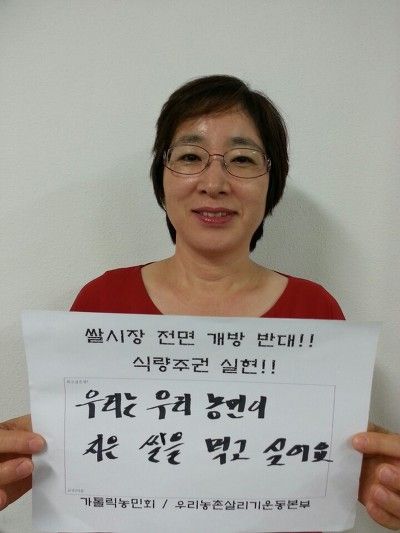 쌀시장 전면 개방 반대!!
식량주권 실현!!
우리는 우리 농민이
지은 쌀을 먹고 싶어요
가톨릭농민회 / 우리농촌살리기운동본부